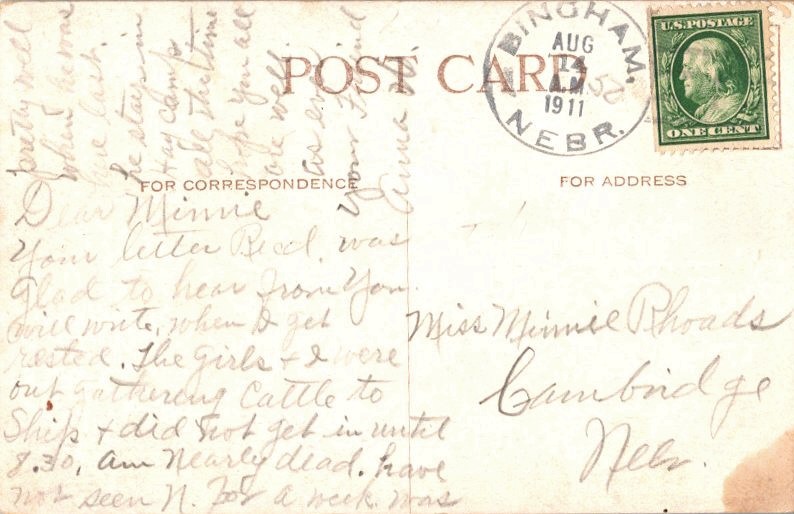 POST CARD
BINGHAM,
NEBR.
AUG
14
A.M
1911
U.S. POSTAGE
ONE CENT
FOR CORRESPONDENCE
FOR ADDRESS
Dear Minnie
Your letter Recd. was
glad to hear from You
will write, when I get
rested. The Girls + I were
out gathering Cattle to
Ship + did not get in until
8.30, am Nearly dead. have
not seen N. for a week. was
pretty well
when he was
here last.
he stays in
Hay Camp
all the time
hope you all
are well
as ever
Your Friend
Anna
Miss Minnie Rhoads
Cambridge
Nebr.